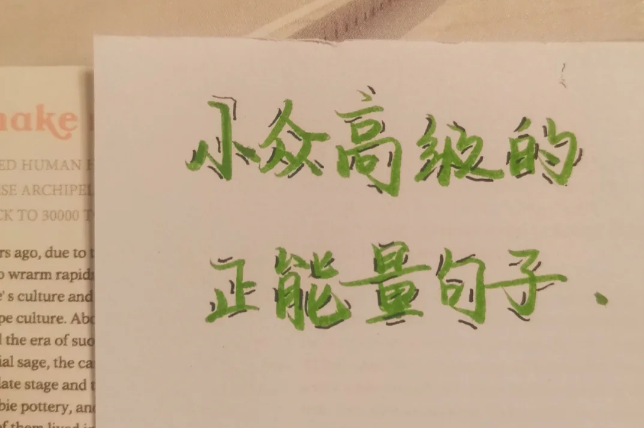 小众高级的
正能量句子、
make
ED HUMAN
SE ARCHIPEL
CK TO 30000
rs ago, due to
o wrarm rapid
e's culture and
pe culture. Abo
l the era of suo
ial sage, the ca
late stage and t
bie pottery, an
of them lived in